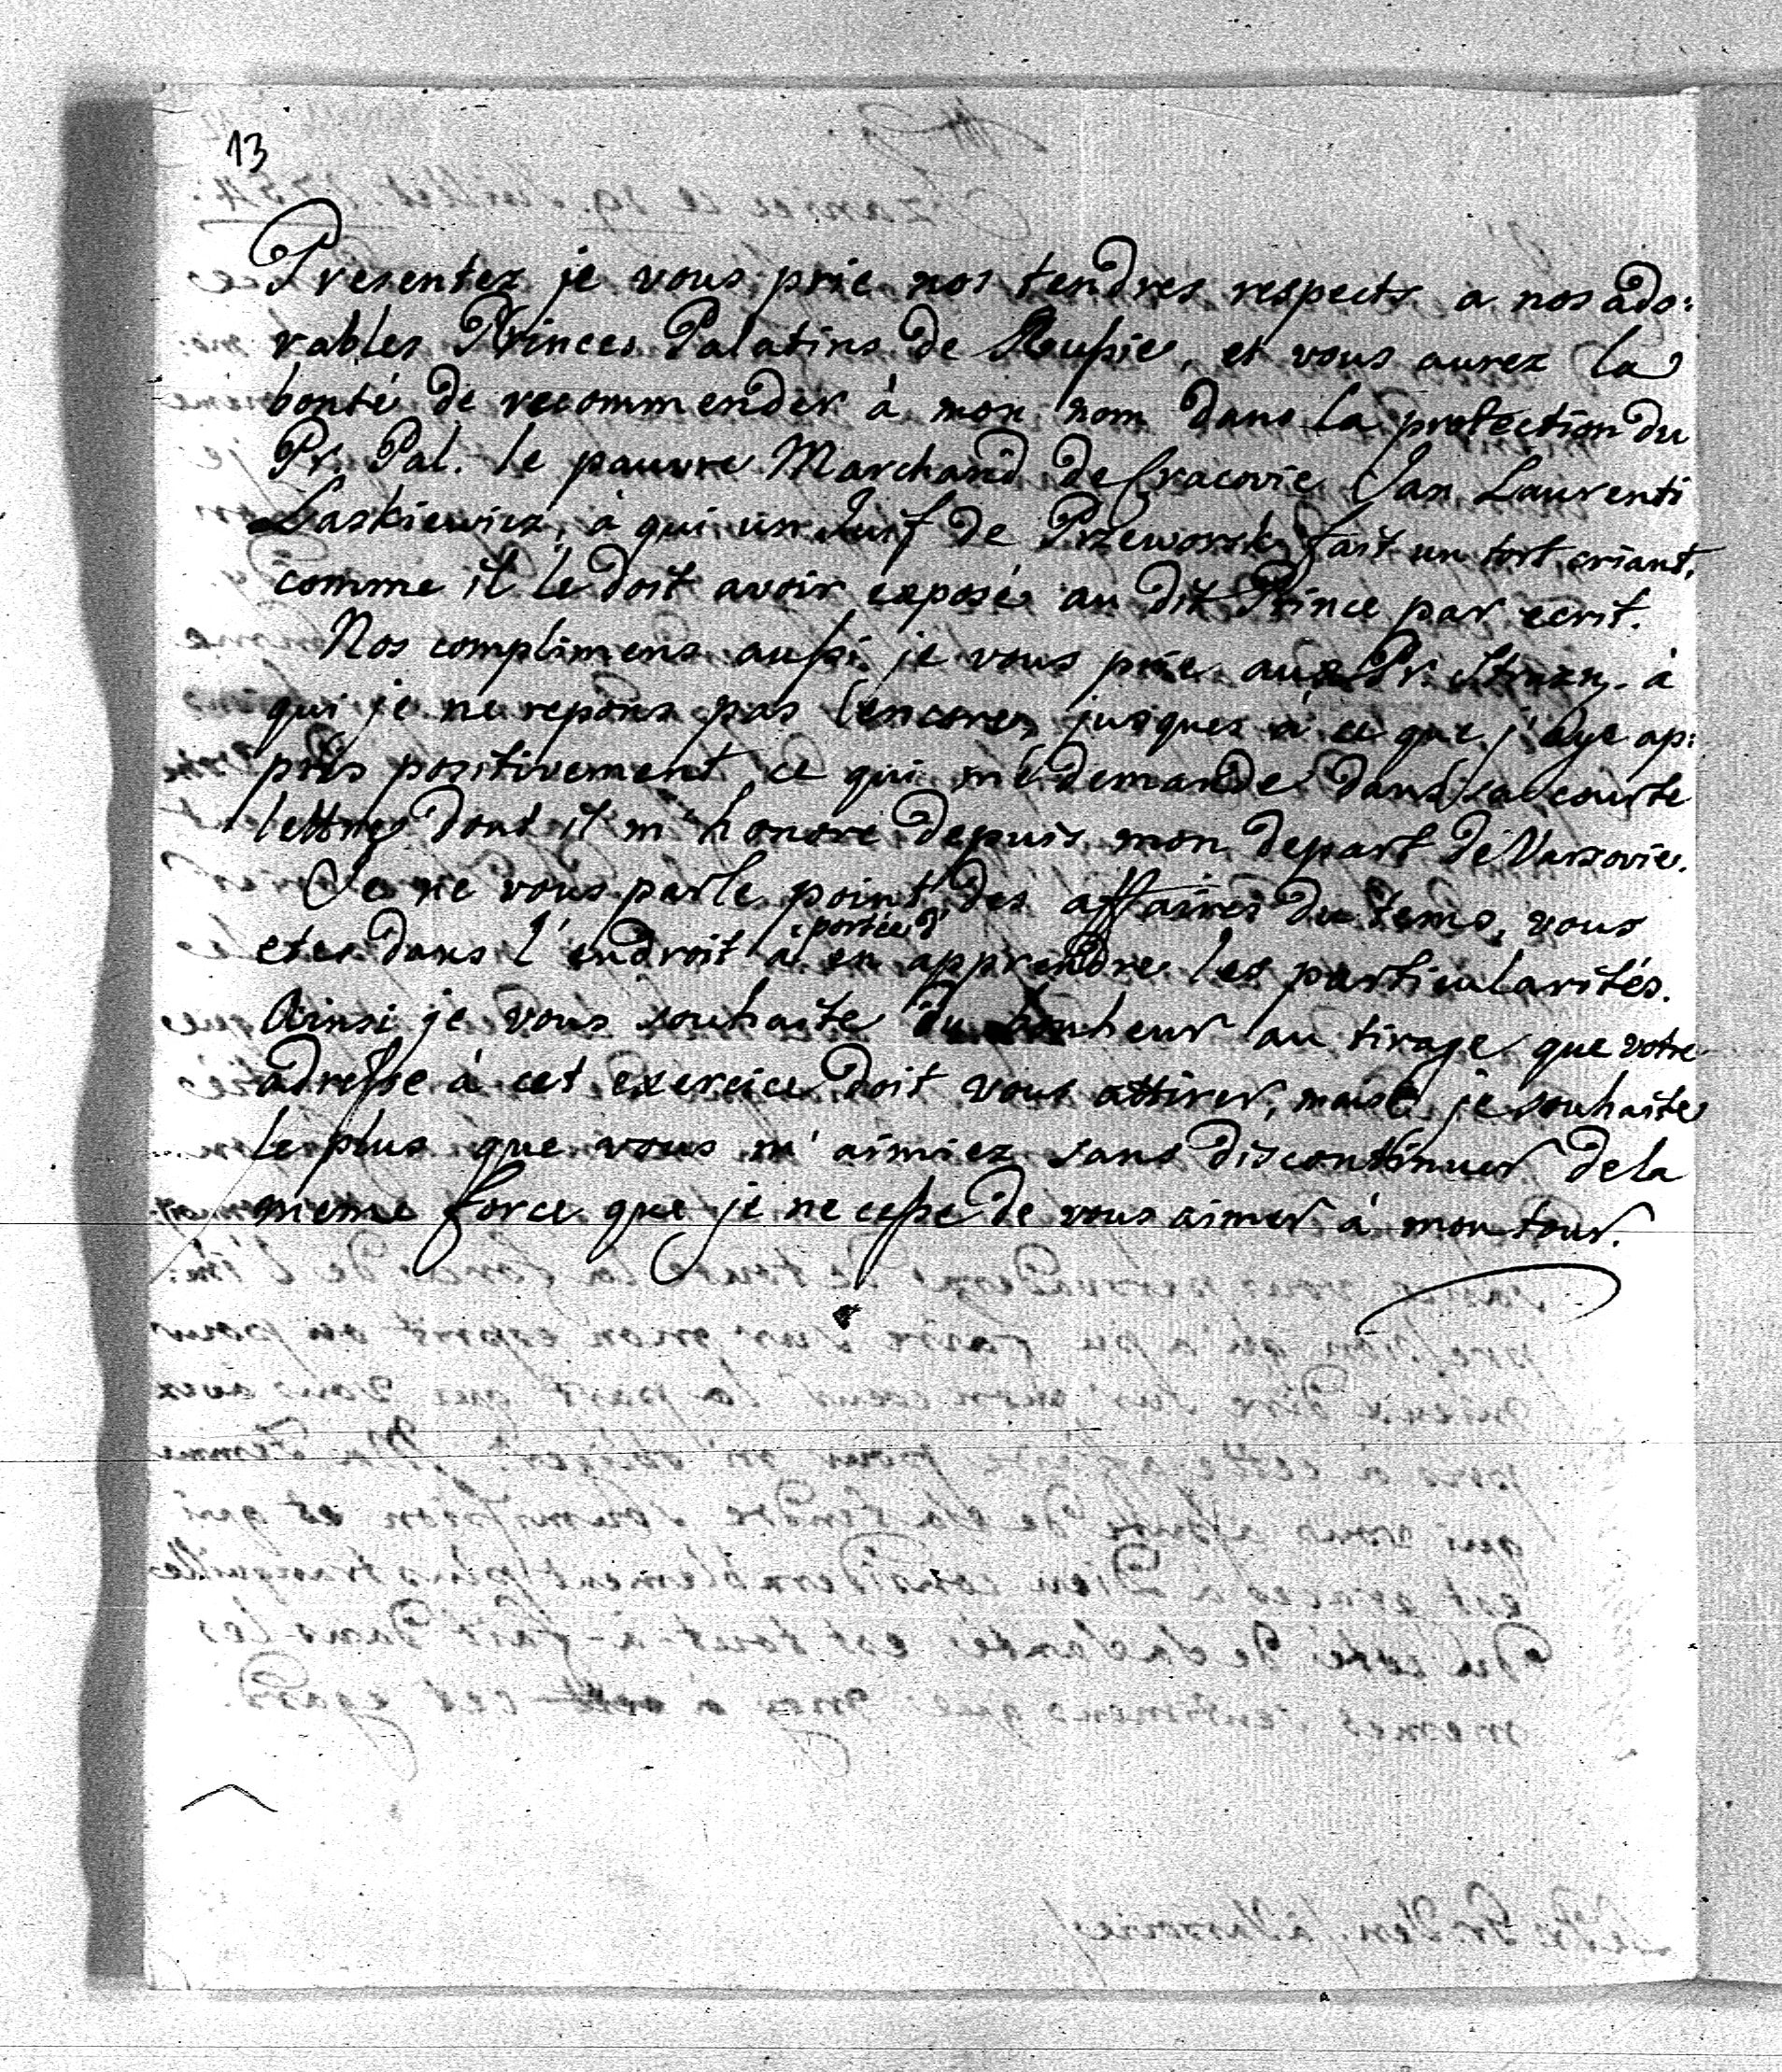 13
Presentez je vous prie nos tendres respects a nos ado:
rables Princes Palatins de Russie, et vous aurez la
bonté de recommender à mon nom dans la protection du
Pr. Pal. le pauvre Marchand de Cracovie Jan Laurenti
Laskiewicz, à qui un Juif de Przeworsk fait un tort criant,
comme il le doit avoir exposé au dit Prince par ecrit.
Nos complimens aussi je vous prie aux Pr. à
qui je ne repons pas encore, jusques à ce que j'aye ap:
pris positivement, ce qui me demande dans sa courte
lettre dont il m'honore depuis mon depart de Varsovie.
Je ne vous parle point des affaires du tems, vous
etes dans l'endroit à portée d'en apprendre les particularités.
Ainsi je vous souhaite du bonheur au tirage que votre
adresse à cet exercice doit vous attirer, mais je souhaite
le plus que vous m'aimiez sans discontinuer de la
meme force que je ne cesse de vous aimer à mon tour.